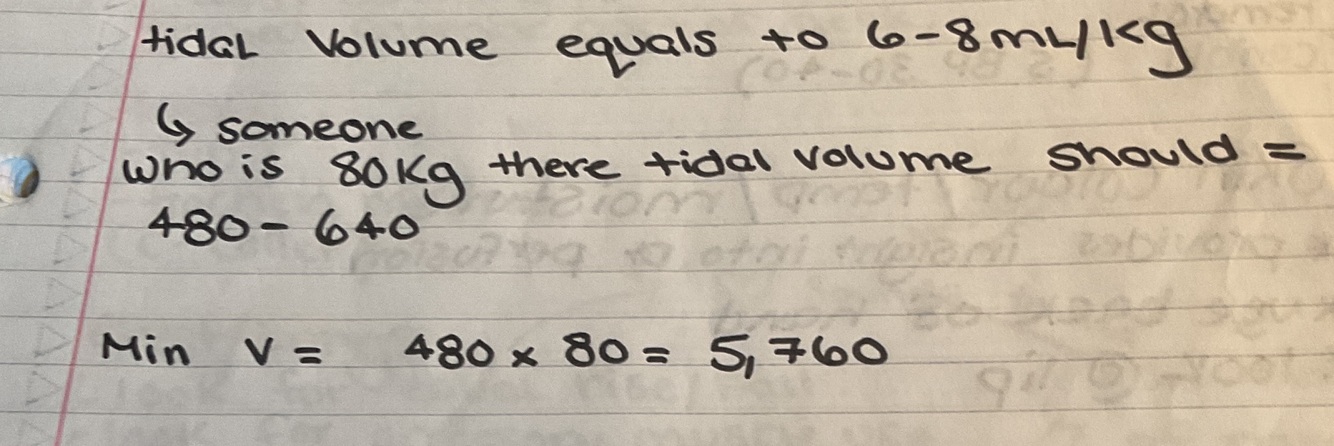 tidal Volume equals to 6-8mL/kg
↳ someone
who is 80kg there tidal volume should =
480 - 640
Min V = 480 x 80 = 5,760